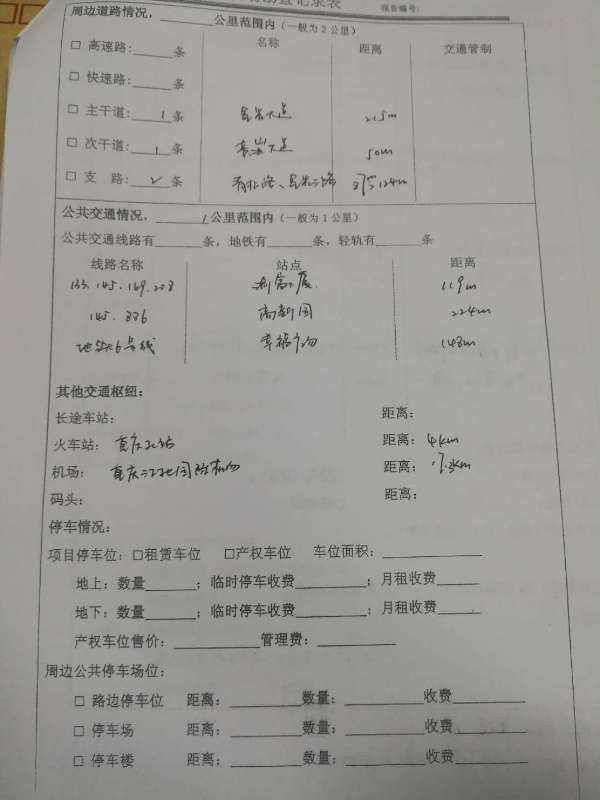 勘查记录表
报告编号:
周边道路情况，______公里范围内（一般为2公里）
名称 距离 交通管制
□ 高速路:____条
□ 快速路:____条
□ 主干道:1条 大道 215m
□ 次干道:1条 大道 50m
□ 支 路:2条 124m
公共交通情况，______1公里范围内（一般为1公里）
公共交通线路有______条，地铁有______条，轻轨有______条
线路名称 站点 距离
133. 145. 169. 208 119m
145. 886 高新园 224m
地铁6号线 148m
其他交通枢纽:
长途车站: 距离:
火车站: 重庆北站 距离: 4km
机场: 重庆江北国际机场 距离:
码头: 距离:
停车情况:
项目停车位: □租赁车位 □产权车位 车位面积:____________
地上: 数量______; 临时停车收费________; 月租收费_____
地下: 数量______; 临时停车收费________; 月租收费_____
产权车位售价: __________管理费: _________
周边公共停车场位:
□ 路边停车位 距离: ________数量: ________收费________
□ 停车场 距离: ________数量: ________收费________
□ 停车楼 距离: ________数量: ________收费________